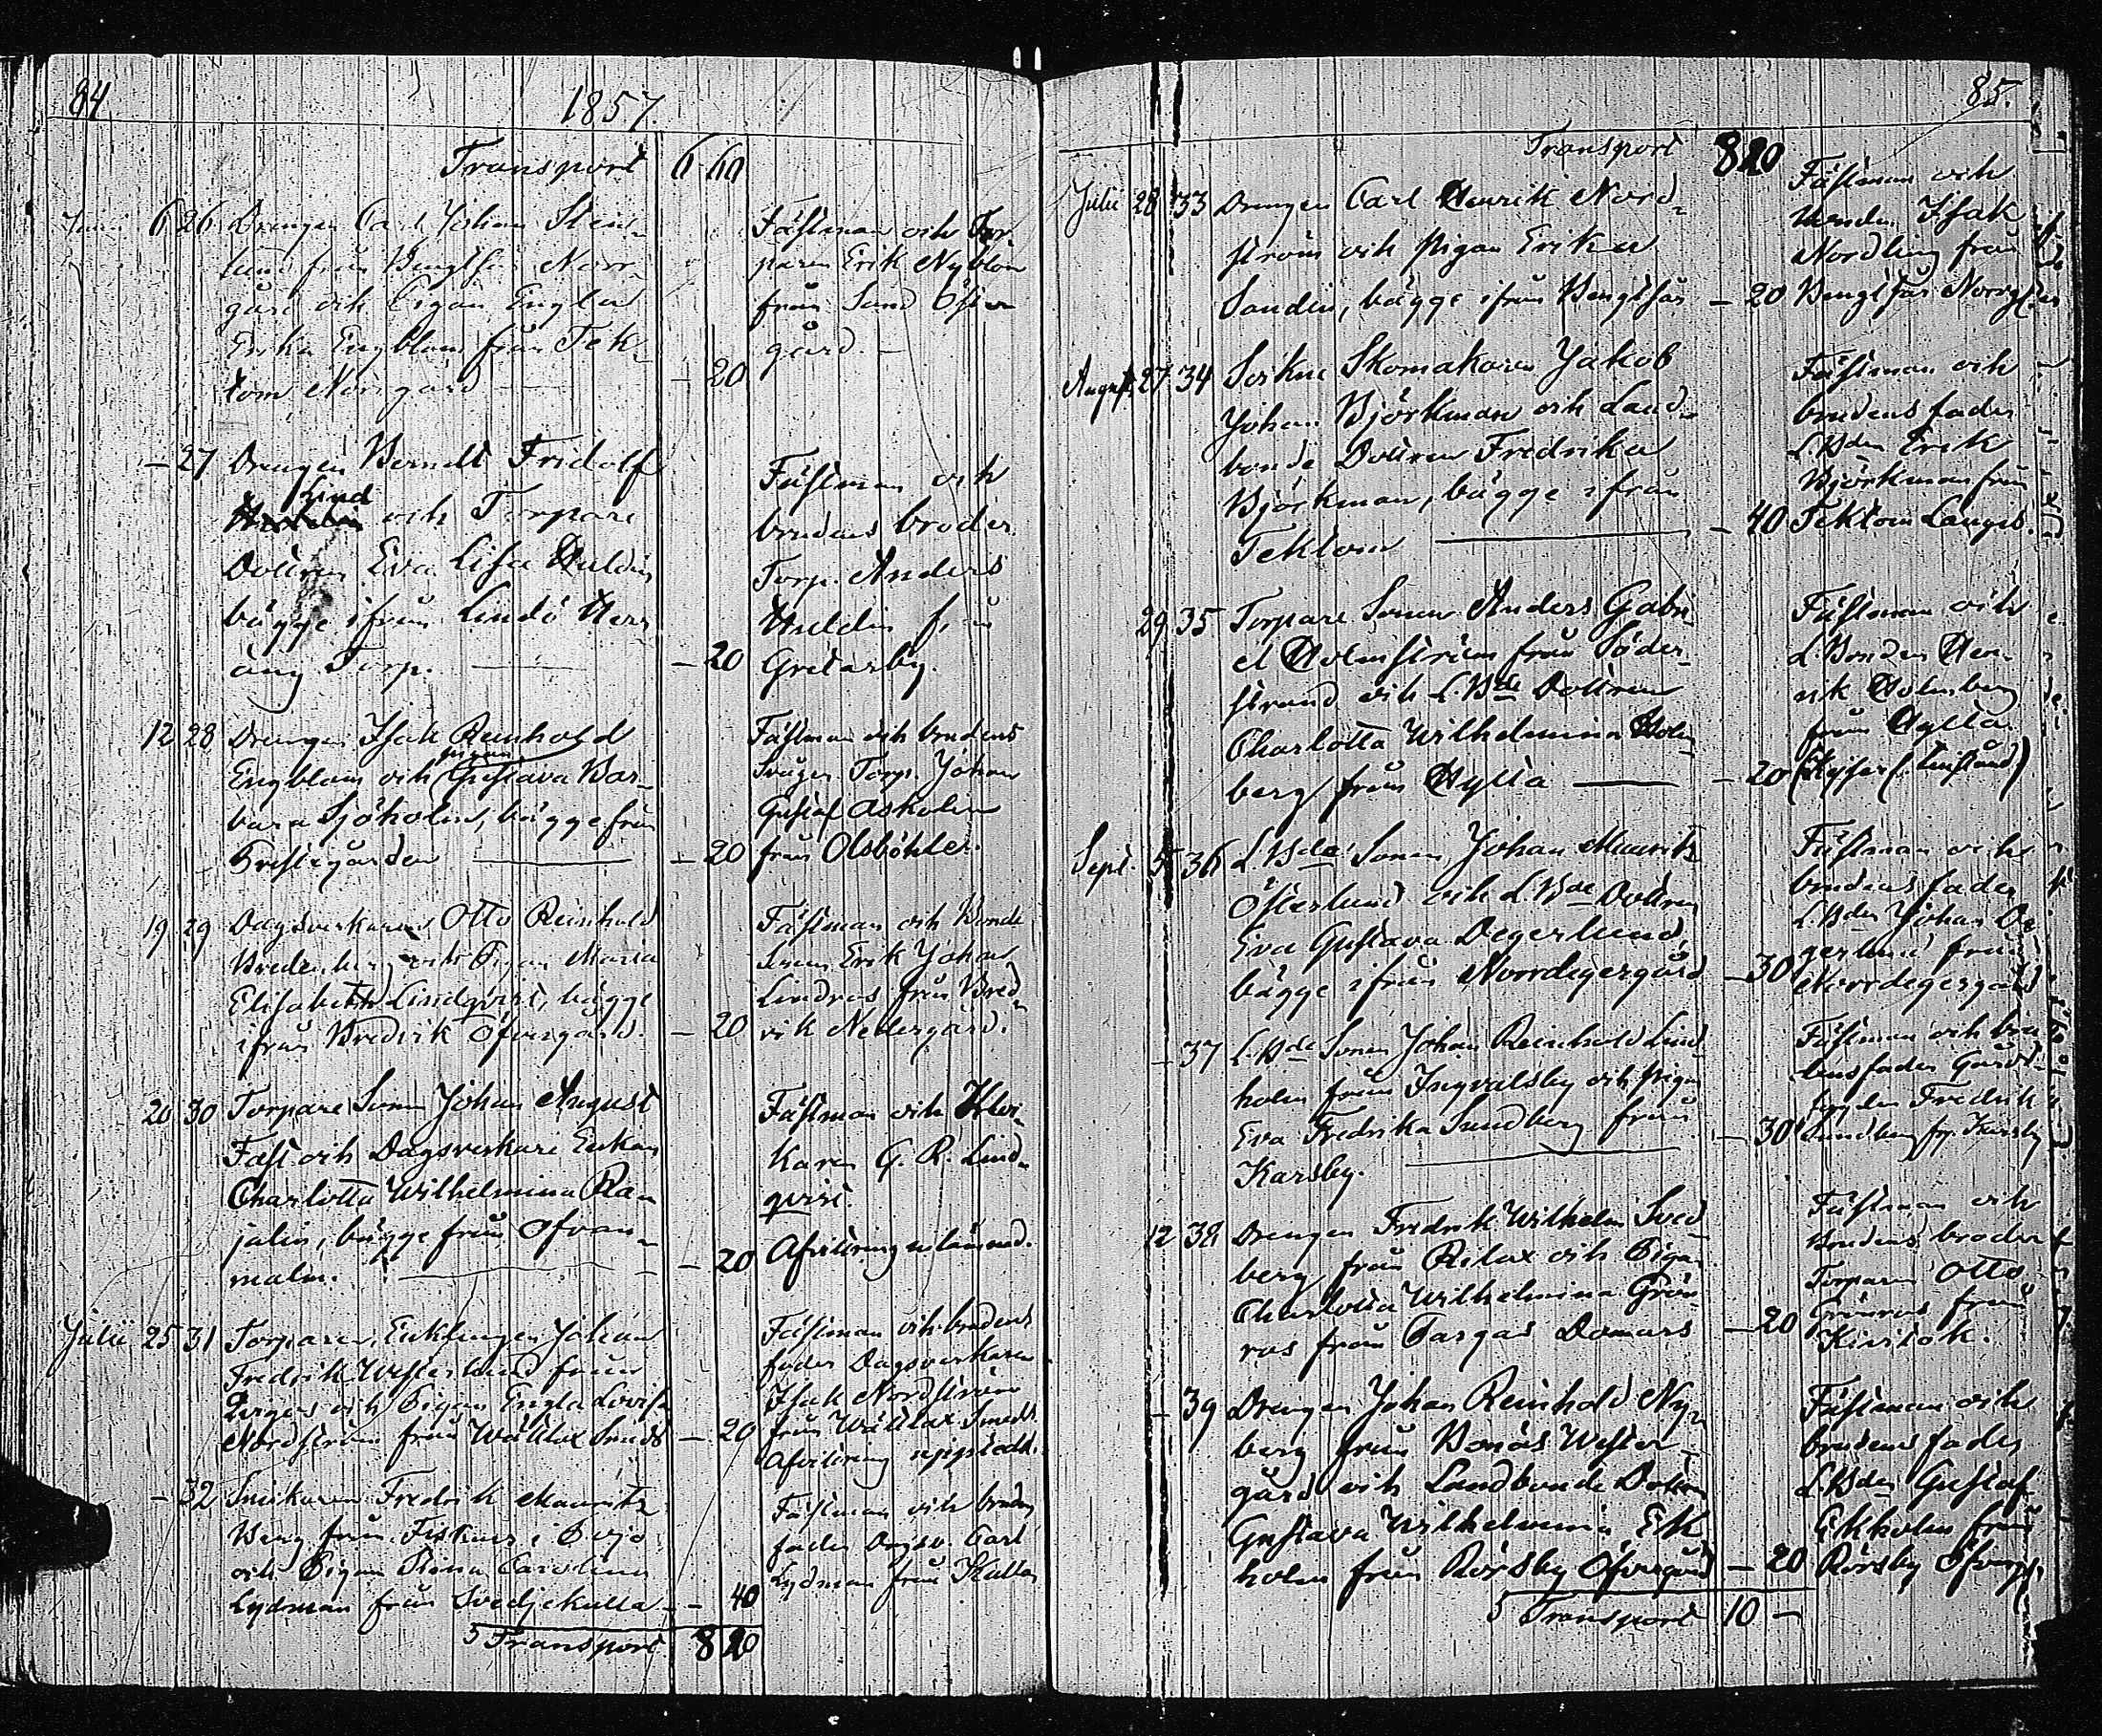 84
1857.
Transport 6 60
Juni 6 26 Drengen Carl Johan Sten-
lund från Bengtsår Norr-
gård och Pigan Engla
Erika Engblom från Tek-
tom Norrgård — 20
Fästman och Tor-
paren Erik Nyblom
från Sund Öfver
gård.
— 27 Drengen Berndt Fridolf
Lind
och Torpare
Dottren Eva Lisa Huldin
bägge ifrån Lindö Herr
äng Torp. — 20
Fästman och
brudens broder
Torp. Anders
Huldin från
Gretarby.
12 28 Drengen Isak Reinhold
pigan
Engblom och Gustava Bar-
bara Sjöholm, bägge från
Prestgården — 20
Fästman och brudens
Svåger Torp. Johan
Gustaf Askolin
från Olsböhle.
19 29 Dagsverkaren Otto Reinhold
Bredenberg och Pigan Maria
Elisabeth Lindqvist, bägge
ifrån Bredvik Öfvergård. — 20
Fästman och Bonde
Sonen Erik Johan
Lindros från Bred-
vik Nedergård.
20 30 Torpare Sonen Johan August
Fast och Dagsverkare Enkan
Charlotta Wilhelmina Ra-
jalin, bägge från Ofvan-
malm. — 20
Fästman och Kloc-
karen G. R. Lind-
qvist.
Afvittring
Julii 25 31 Torparen, Enklingen Johan
Fredrik Westerlund från
och Pigan Engla Lovisa
Nordström från Wättlax Smeds — 20
Fästman och brudens
fader Dagsverkaren
Isak Nordström
från Wättlax Smeds.
Afvittring uppstädd.
— 32 Snickaren Fredrik Mauritz
Berg från Fiskars i Pojo
och Pigan Stina Carolina
Lydman från Svedjekulla — 40
Fästman och brudens
fader Dagsv. Carl
Lydman från Kulla
Transport 8 20
85.
Transport 8 20
Julii 28 33 Drengen Carl Henrik Nord-
ström och Pigan Erika
Sandin, bägge ifrån Bengtsår — 20
Fästman och
Isak
Nordling från
Bengtsår Norrg.
August 27 34 Sockne Skomakaren Jakob
Johan Björkman och Land-
bonde Dottren Fredrika
Björkman, bägge ifrån
Tektom — 40
Fästman och
brudens fader
L.Bden Erik
Björkman från
Tektom Långs.
29 35 Torpare Sonen Anders Gabri-
el Holmström från Söder-
strand och L.Bde Dottren
Charlotta Wilhelmina Holm
berg från Hylta — 20
Fästman och
L.Bonden Hen-
rik Holmberg
från Hylta.
Sept. 5 36 L.Bde Sonen Johan Mauritz
Österlund och L.Bde Dottren
Eva Gustava Degerlund,
bägge ifrån Norrdegergård — 30
Fästman och
brudens fader
L.Bden Johan De-
gerlund från
Norrdegergård
— 37 L.Bde Sonen Johan Reinhold Lind-
holm från Ingvalsby och Pigan
Eva Fredrika Sundberg från
Karsby. — 30
Fästman och bru-
dens fader Gårds-
Fredrik
Sundberg fr. Karsby
12 38 Drengen Fredrik Wilhelm Sved-
berg från Rilax och Pigan
Charlotta Wilhelmina Grön-
ros från Pargas Domars — 20
Fästman och
Brudens broder
Torparen Otto
Grönros från
— 39 Drengen Johan Reinhold Ny-
berg från Bonäs Wester-
gård och Landbonde Dottren
Gustava Wilhelmina Ek-
holm från Rörsby Öfvergård — 20
Fästman och
brudens fader
L.Bden Gustaf
Ekholm från
Rörsby Öfverg.
Transport 10 —